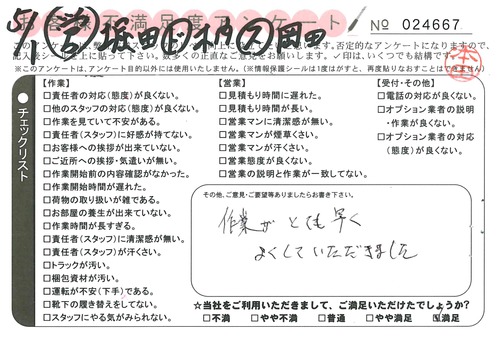 お客様不満足度アンケート
№ 024667
5/ ㊒堀田 ㊐木内 ㋜岡田
※このアンケートは、アンケート目的以外には使用いたしません。(※情報保護シールは1度はがすと、再度貼りなおすことはできません)
チェックリスト
【作業】
□責任者の対応(態度)が良くない。
□他のスタッフの対応(態度)が良くない。
□作業を見ていて不安がある。
□責任者(スタッフ)に好感が持てない。
□お客様への挨拶が出来ていない。
□ご近所への挨拶・気遣いが無い。
□作業開始前の内容確認がなかった。
□作業開始時間が遅れた。
□荷物の取り扱いが雑である。
□お部屋の養生が出来ていない。
□作業時間が長すぎる。
□責任者(スタッフ)に清潔感が無い。
□責任者(スタッフ)が汗くさい。
□トラックが汚い。
□梱包資材が汚い。
□運転が不安(下手)である。
□靴下の履き替えをしてない。
□スタッフにやる気がみられない。
【営業】
□見積もり時間に遅れた。
□見積もり時間が長い。
□営業マンに清潔感が無い。
□営業マンが煙草くさい。
□営業マンが汗くさい。
□営業態度が良くない。
□営業の説明と作業が一致してない。
【受付・その他】
□電話の対応が良くない。
□オプション業者の説明・作業が良くない。
□オプション業者の対応(態度)が良くない。
その他、ご意見・ご要望等ありましたらお書き下さい。
作業がとても早く
よくしていただきました
☆当社をご利用いただきまして、ご満足いただけたでしょうか?
□不満 □やや不満 □普通 □やや満足 ☑満足